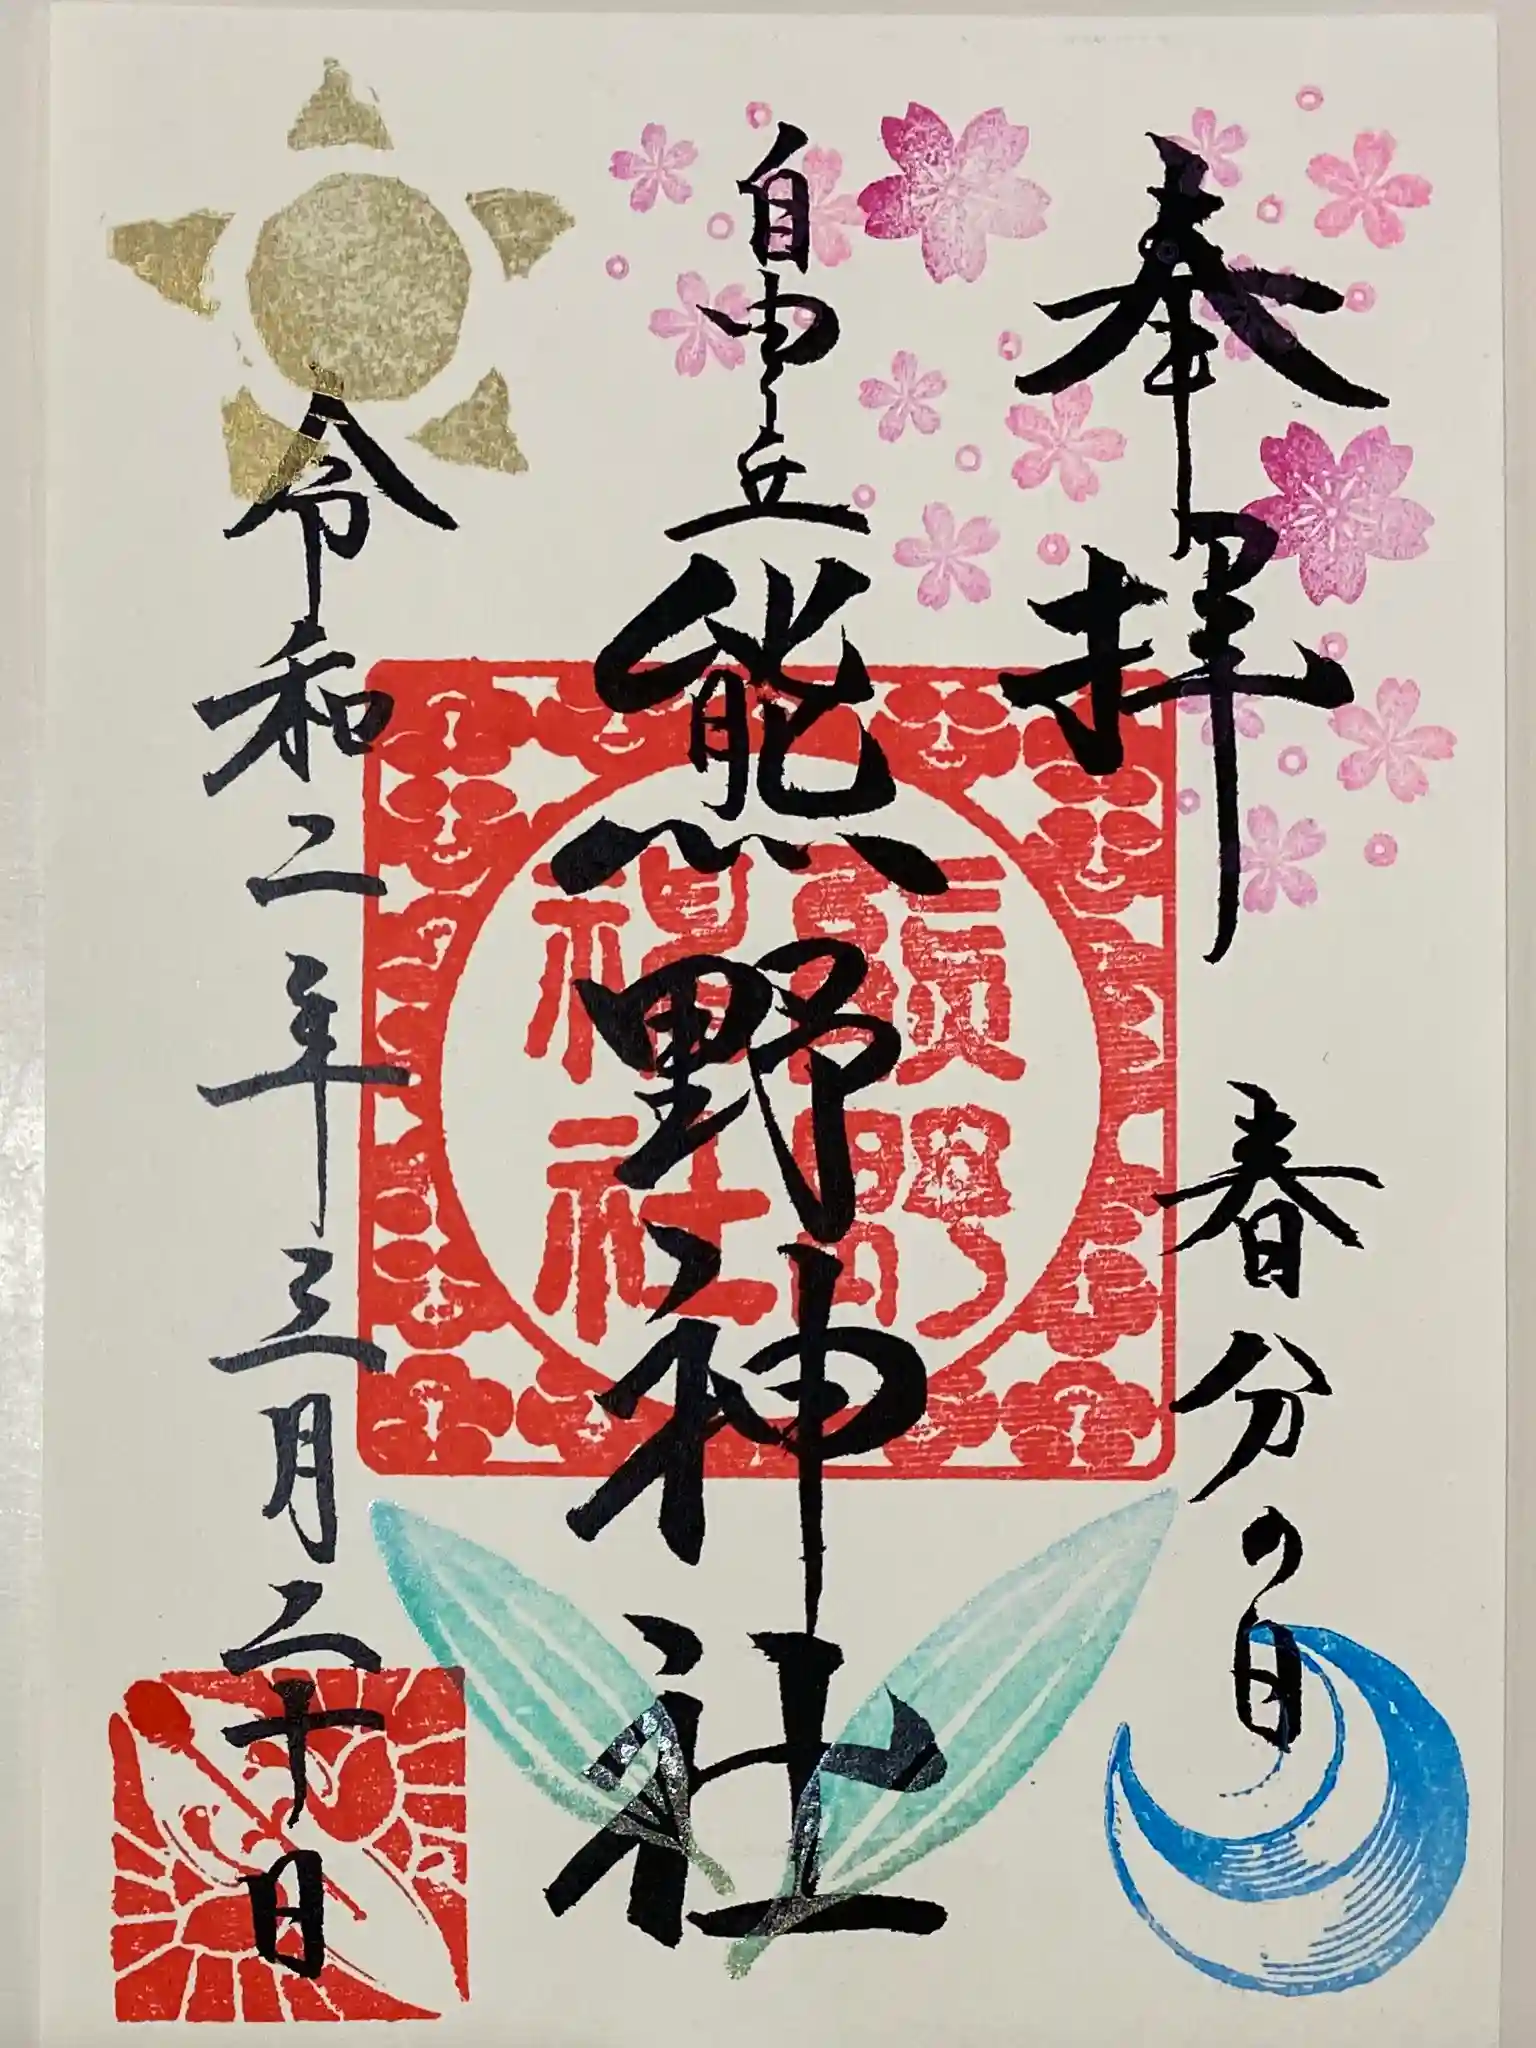 奉拝 春分の日
自由が丘
熊野神社
令和二年三月二十日
熊野
神社